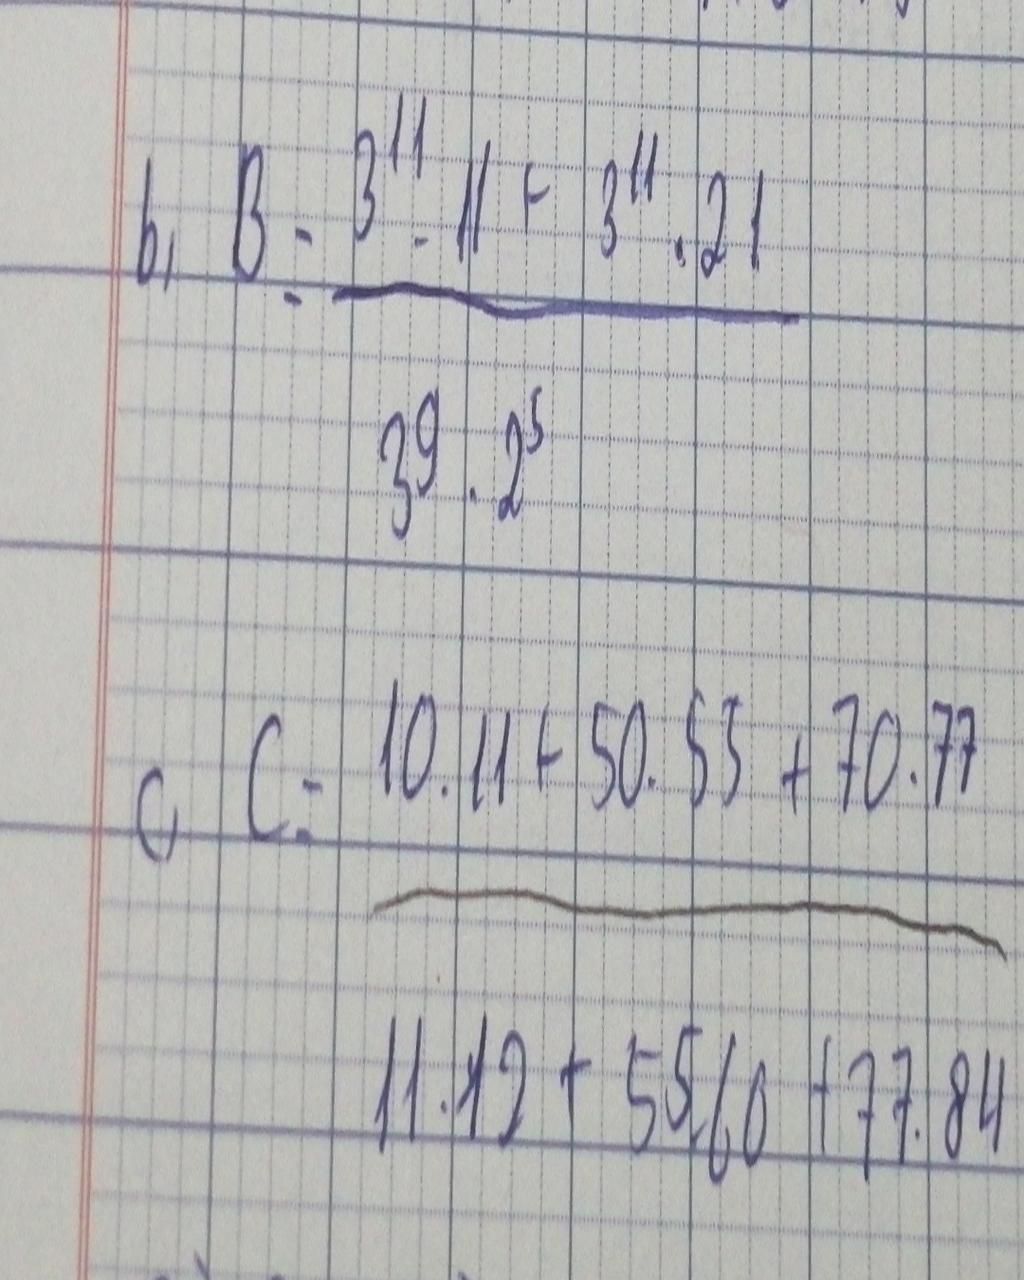 b, B = 3¹¹ . 11 + 3¹¹ . 21
3⁹ . 2⁵
c, C = 10 . 11 + 50 . 55 + 70 . 77
11 . 12 + 55 . 60 + 77 . 84